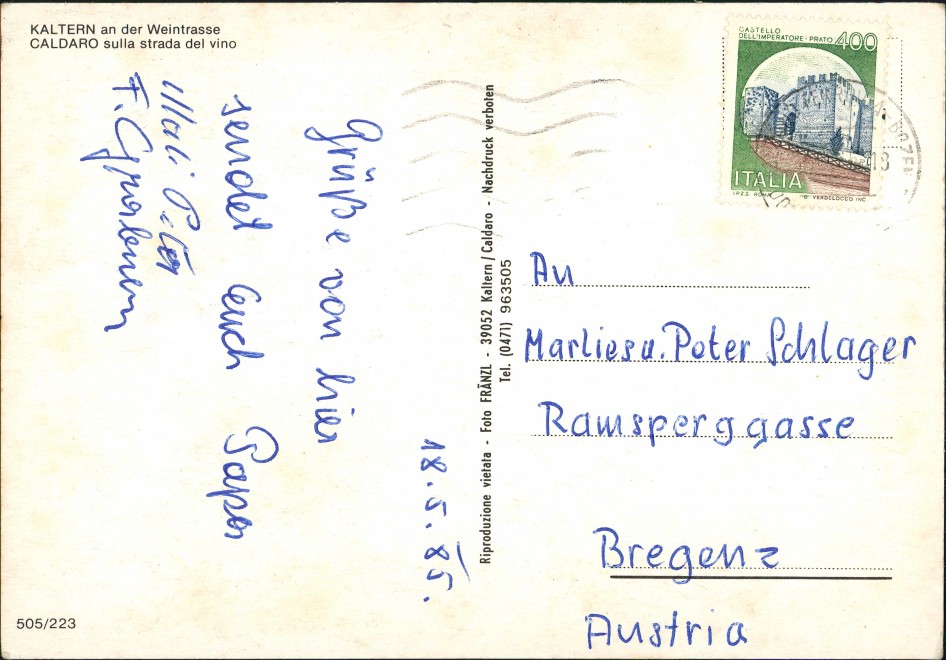 KALTERN an der Weintrasse
CALDARO sulla strada del vino
18.5.85.
Grüße von hier
sendet Euch Papa
Peter
F.
505/223
Riproduzione vietata - Foto FRÄNZL - 39052 Kaltern / Caldaro - Nachdruck verboten
Tel. (0471) 963505
CASTELLO
DELL'IMPERATORE - PRATO 400
ITALIA
I.P.Z.S. ROMA
VERDELOCCO INC.
BOZEN
18
An
Marlies u. Peter Schlager
Ramsperggasse
Bregenz
Austria